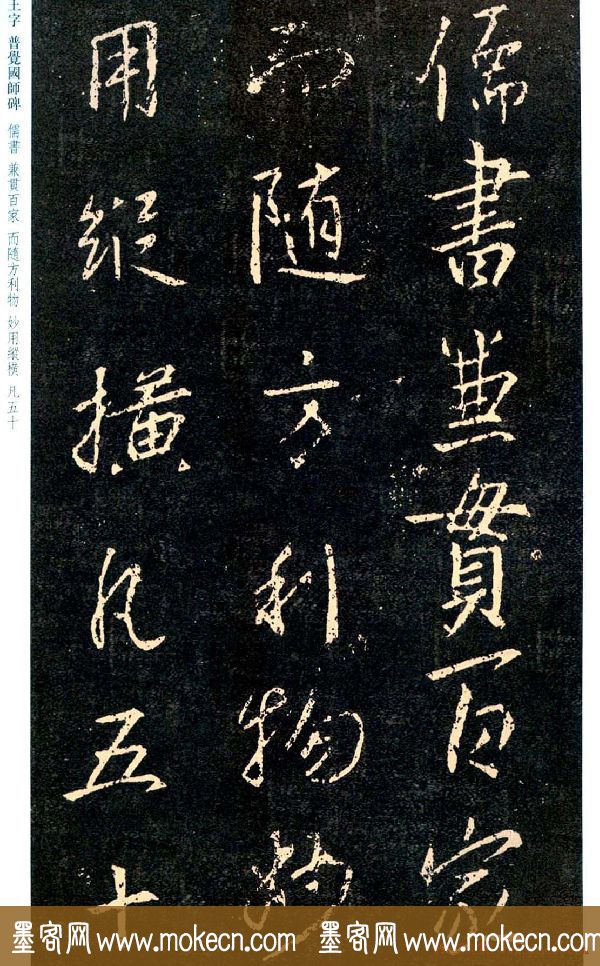 儒書兼貫百家
而隨方利物妙
用縱橫凡五十
王字 普覺國師碑 儒書 兼貫百家 而隨方利物 妙用縱橫 凡五十
墨客网 www.mokecn.com 墨客网 www.mokecn.com